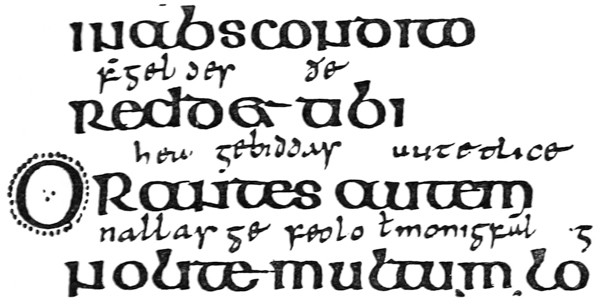 inabscondito
f̄gel des ðe
reddet tibi
heu· gebiddas uutedlice
ORantes autem
nallas ge feolo ł monigfūl ·g
nolite multum lo